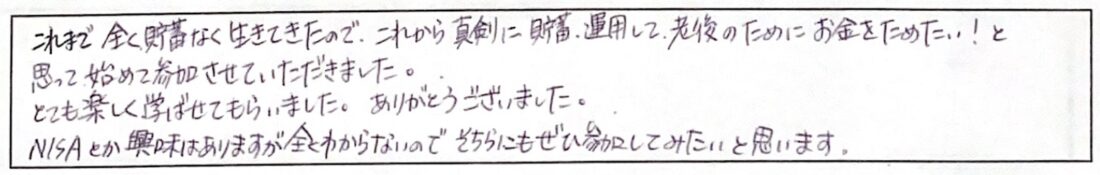 これまで全く貯蓄なく生きてきたので、これから真剣に貯蓄、運用して、老後のためにお金をためたい！と
思って始めて参加させていただきました。
とても楽しく学ばせてもらいました。ありがとうございました。
NISAとか興味はありますが全くわからないのでそちらにもぜひ参加してみたいと思います。